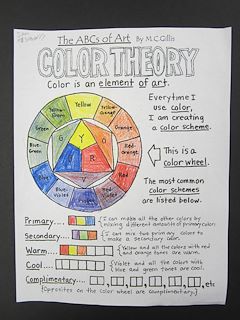 The ABCs of Art By M.C. Gillis
COLOR THEORY
Color is an element of art.
Yellow
Yellow-Orange
Orange
Red-Orange
Red
Red-Violet
Violet
Blue-Violet
Blue
Blue-Green
Green
Yellow-Green
Y
O
R
V
B
G
Everytime I
use color,
I am creating
a color scheme.
This is a
color wheel.
The most common
color schemes
are listed below.
Primary....
I can make all the other colors by
mixing different amounts of primary color.
Secondary....
I can mix two primary colors to
make a secondary color.
Warm....
Yellow and all the colors with red
and orange tones are warm.
Cool....
Violet and all the colors with
blue and green tones are cool.
Complimentary.... , , , etc
(Opposites on the color wheel are complimentary.)